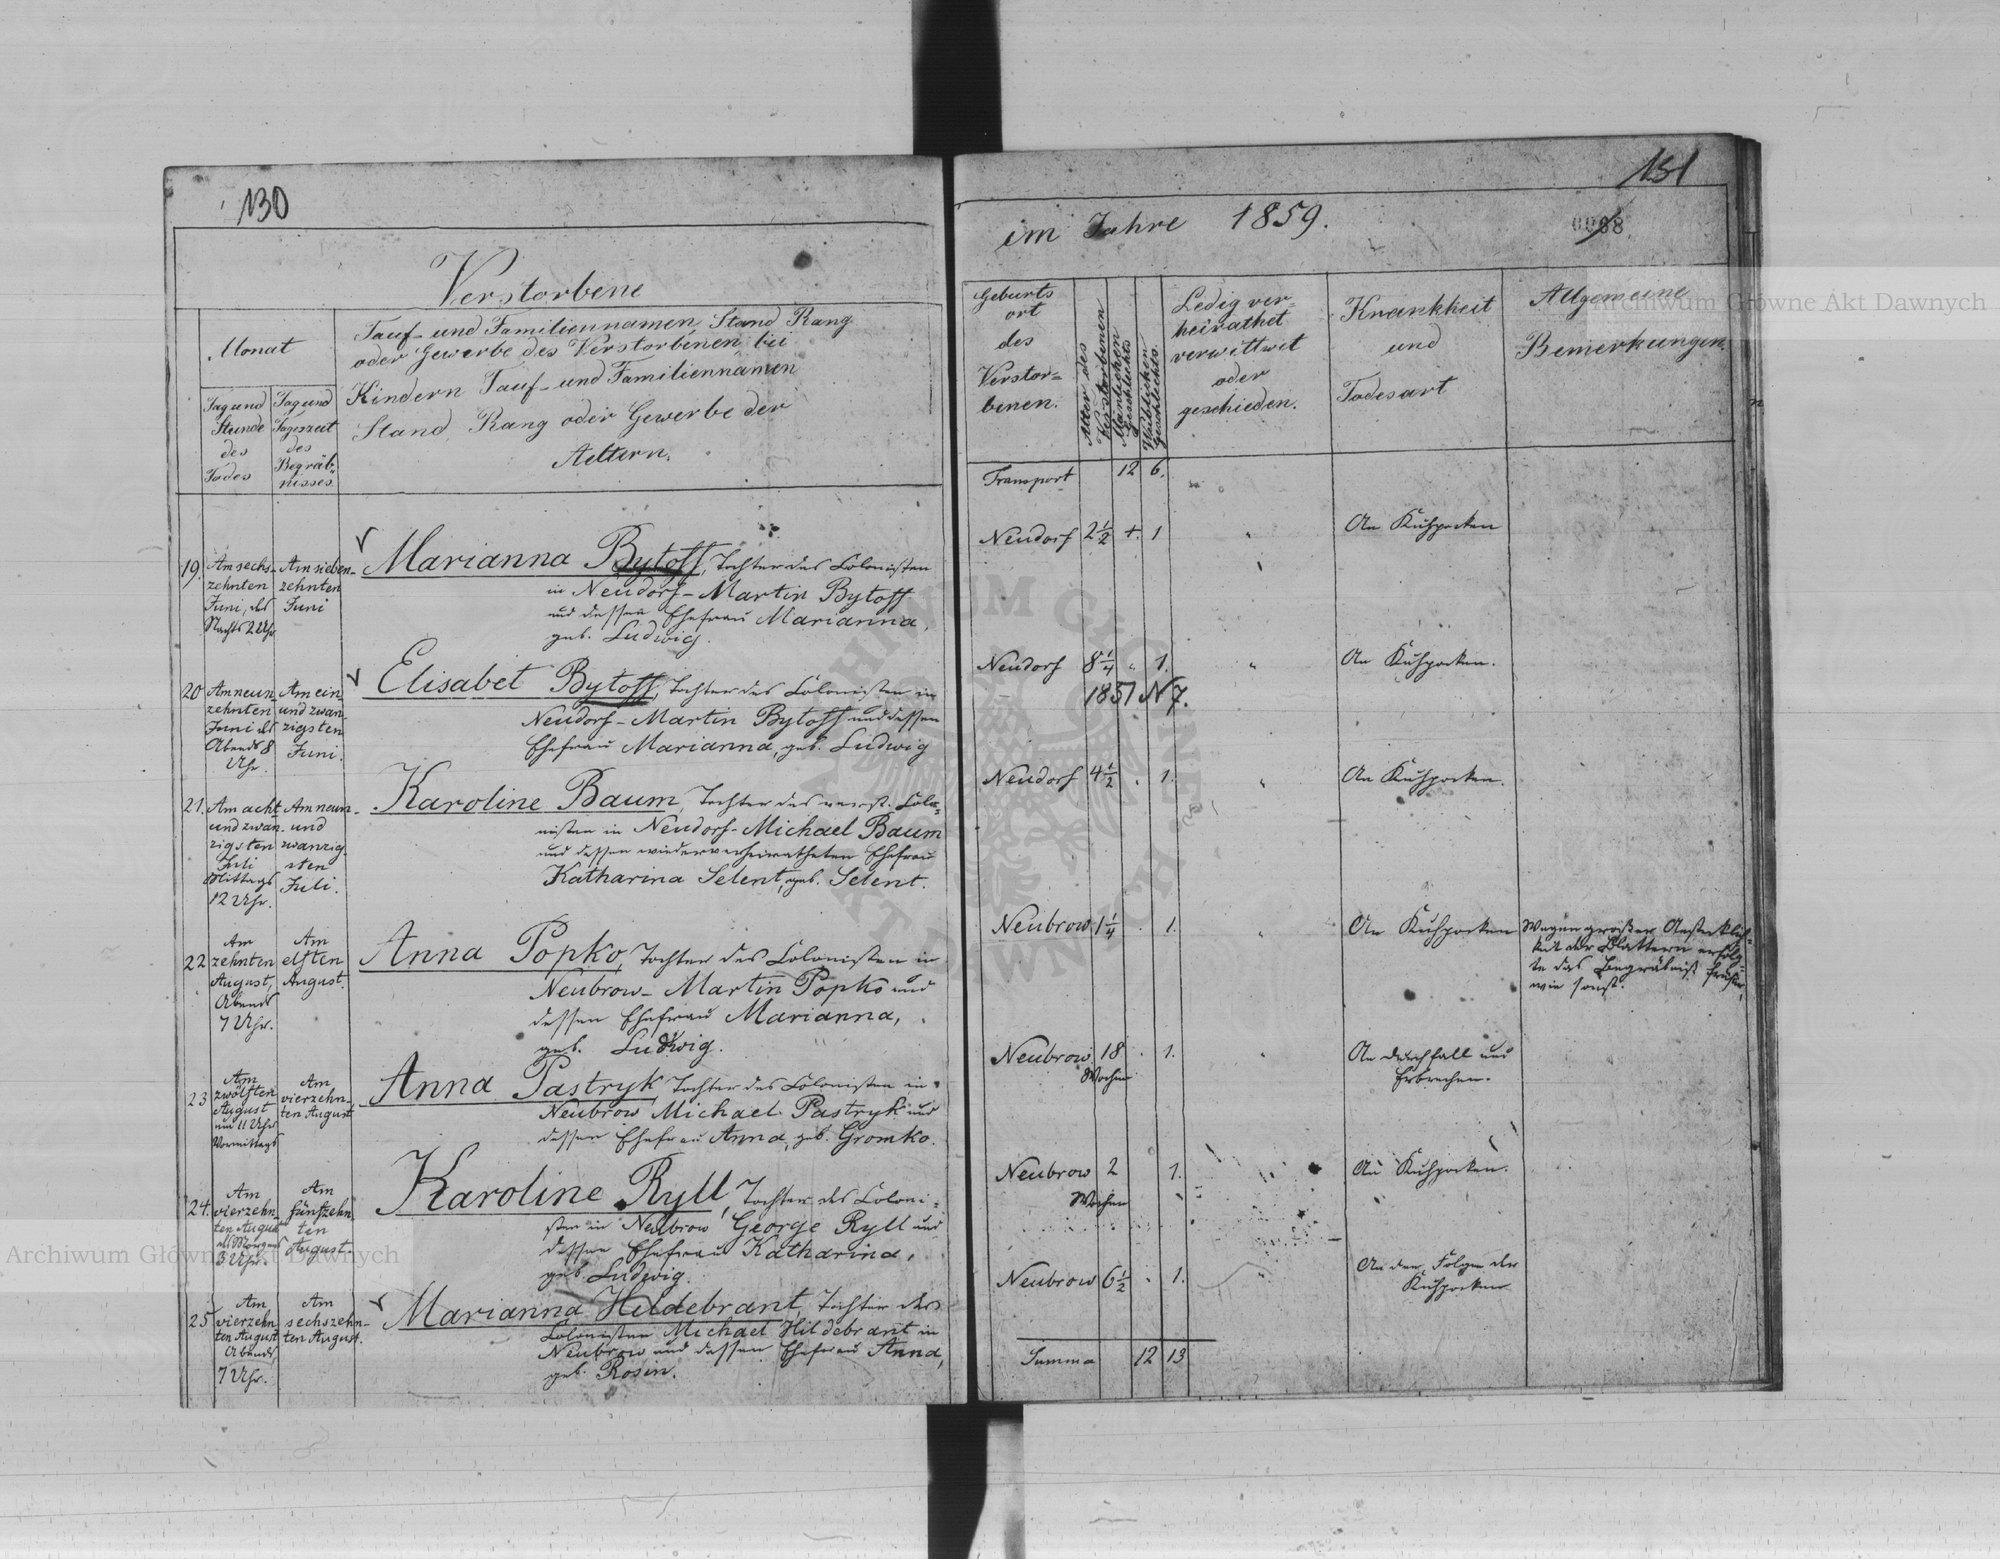 130
Verstorbene
Monat
Tag und Stunde des Todes
Tag und Tageszeit des Begräbnisses.
Tauf- und Familiennamen, Stand Rang
oder Gewerbe des Verstorbenen bei
Kindern Tauf- und Familiennamen
Stand Rang oder Gewerbe der
Aeltern.
19. Am sechs-
zehnten
Juni, des
Nachts 2 Uhr
Am sieben-
zehnten
Juni
Marianna Bytoff, Tochter des Colonisten
in Neudorf - Martin Bytoff
und dessen Ehefrau Marianna,
geb. Ludwig.
20 Am neun-
zehnten
Juni des
Abends 8
Uhr.
Am ein
und zwan-
zigsten
Juni.
Elisabet Bytoff, Tochter des Colonisten in
Neudorf - Martin Bytoff und dessen
Ehefrau Marianna, geb. Ludwig
21. Am acht
und zwan-
zigsten
Juli
Mittags
12 Uhr.
Am neun-
und
zwanzig-
sten
Juli.
Karoline Baum, Tochter des verst. Colo-
nisten in Neudorf - Michael Baum
und dessen wiederverheiratheten Ehefrau
Katharina Selent, geb. Selent.
22 Am
zehnten
August,
Abends
7 Uhr.
Am
elften
August.
Anna Popko, Tochter des Colonisten in
Neubrow - Martin Popko und
dessen Ehefrau Marianna,
geb. Ludwig.
23 Am
zwölften
August
um 11 Uhr
Vormittags
Am
vierzehn-
ten August
Anna Pastryk Tochter des Colonisten in
Neubrow Michael Pastryk und
dessen Ehefrau Anna, geb. Gromko.
24. Am
vierzehn-
ten August
des Morgens
3 Uhr.
Am
fünfzehn
ten
August.
Karoline Ryll, Tochter des Coloni-
sten in Neubrow George Ryll und
dessen Ehefrau Katharina,
geb. Ludwig.
25 Am
vierzehn
ten August
Abends
7 Uhr.
Am
sechszehn-
ten August.
Marianna Hildebrant, Tochter des
Colonisten Michael Hildebrant in
Neubrow und dessen Ehefrau Anna,
geb. Rosin.
131
im Jahre 1859.
Geburts
ort
des
Verstor-
benen.
Alter des Verstorbenen
Mänlichen Geschlechts
Weiblichen Geschlechts.
Ledig ver-
heirathet
verwittwet
oder
geschieden.
Krankheit
und
Todesart
Allgemeine
Bemerkungen.
Transport 12 6.
Neudorf 2½ +. 1 An Kuhpocken
Neudorf 8¼ " 1. An Kuhpocken.
1851 N 7.
Neudorf 4½ . 1. An Kuhpocken.
Neubrow 1¼ . 1. An Kuhpocken
Wegen großer
der Blattern erfolg-
te das Begräbniß früher,
wie sonst.
Neubrow 18 . 1. An Durchfall und
Wochen Erbrechen.
Neubrow 2 1. An Kuhpocken.
Wochen
Neubrow 6½ . 1. An den Folgen der
Kuhpocken
Summa 12 13
Archiwum Główne Akt Dawnych
Archiwum Główne Akt Dawnych